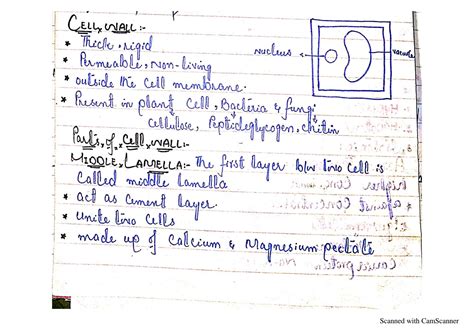 CELL WALL:-
* Thick, rigid
* Permeable, non-living
* outside the cell membrane.
* Present in plant cell, Bacteria & fungi
cellulose, Peptidoglycogen, chitin
nucleus
vacuole
Parts of cell wall:-
MIDDLE LAMELLA:- The first layer b/w two cell is
called middle lamella
* act as cement layer.
* unite two cells
* made up of calcium & Magnesium pectate
Scanned with CamScanner